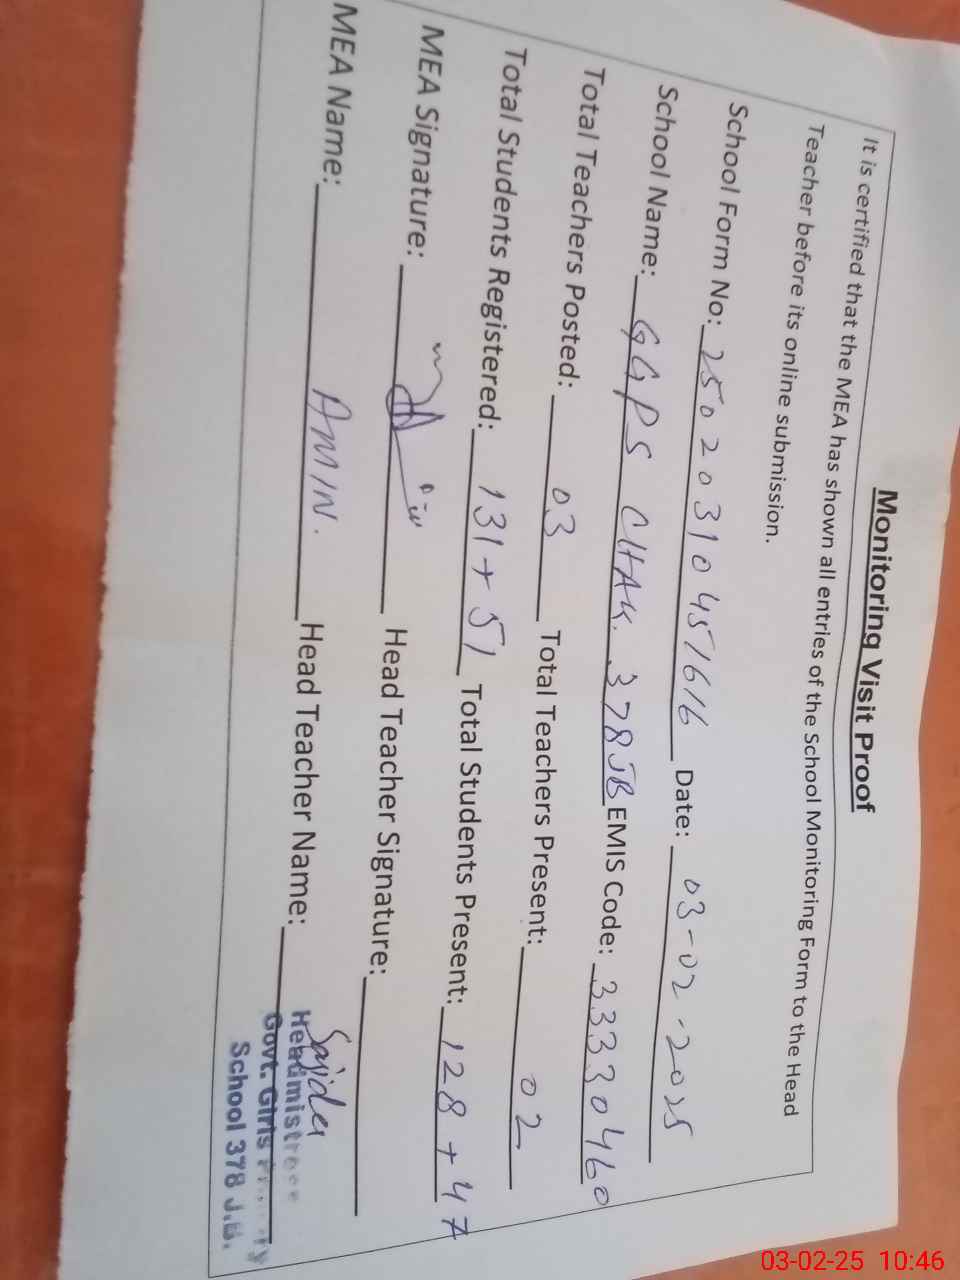 Monitoring Visit Proof
It is certified that the MEA has shown all entries of the School Monitoring Form to the Head
Teacher before its online submission.
School Form No: 25020310451616 Date: 03-02-2025
School Name: GGPS CHAK. 378JB EMIS Code: 33330460
Total Teachers Posted: 03 Total Teachers Present: 02
Total Students Registered: 131+51 Total Students Present: 128+47
MEA Signature: Head Teacher Signature:
MEA Name: AMIN. Head Teacher Name:
Headmistress
Govt. Girls Primary
School 378 J.B.
03-02-25 10:46